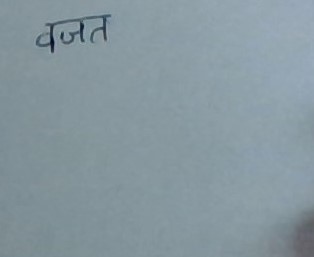 वजत